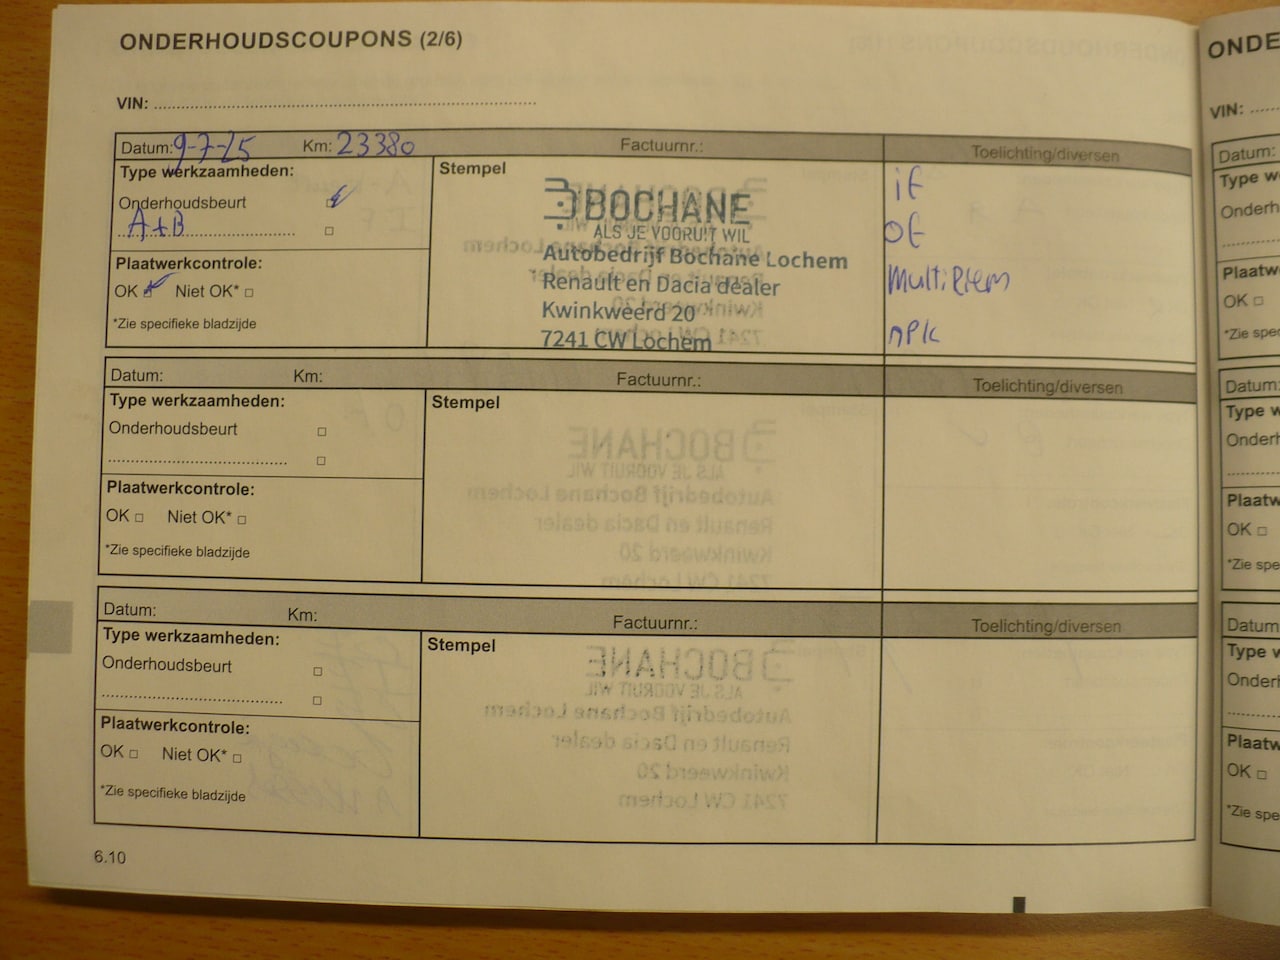 ONDERHOUDSCOUPONS (2/6)
VIN:
Datum: 9-7-25 Km: 23380 Factuurnr.: Toelichting/diversen
Type werkzaamheden:
Onderhoudsbeurt
A+B
Plaatwerkcontrole:
OK Niet OK*
*Zie specifieke bladzijde
Stempel
BOCHANE
ALS JE VOORUIT WIL
Autobedrijf Bochane Lochem
Renault en Dacia dealer
Kwinkweerd 20
7241 CW Lochem
iF
OF
Multiriem
APK
Datum: Km: Factuurnr.: Toelichting/diversen
Type werkzaamheden:
Onderhoudsbeurt
Plaatwerkcontrole:
OK Niet OK*
*Zie specifieke bladzijde
Stempel
Datum: Km: Factuurnr.: Toelichting/diversen
Type werkzaamheden:
Onderhoudsbeurt
Plaatwerkcontrole:
OK Niet OK*
*Zie specifieke bladzijde
Stempel
6.10
ONDE
VIN:
Datum:
Type w
Onderh
Plaatw
OK
*Zie spe
Datum:
Type w
Onderh
Plaatw
OK
*Zie spe
Datum
Type w
Onderh
Plaatw
OK
*Zie spe